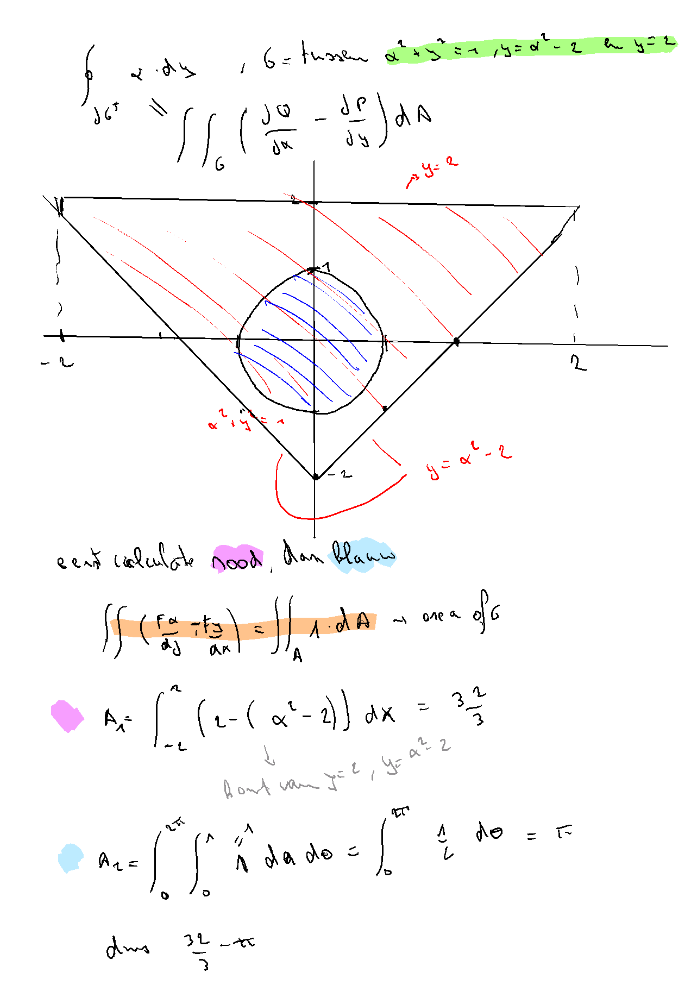 ∮_{∂G⁺} x · dy , G = tussen x² + y² = 1 , y = x² - 2 en y = 2
= ∬_G (∂Q/∂x - ∂P/∂y) dA
→ y = 2
2
1
-2
2
x² + y² = 1
y = x² - 2
-2
eerst calculate rood, dan blauw
∬ (Fx/dy - Fy/dx) = ∬_A 1 · dA → area of G
A₁ = ∫_{-2}^{2} (2 - (x² - 2)) dx = 32/3
↓
komt van y = 2 , y = x² - 2
A₂ = ∫_0^{2π} ∫_0^1 1 da dθ = ∫_0^{2π} 1/2 dθ = π
dus 32/3 - π